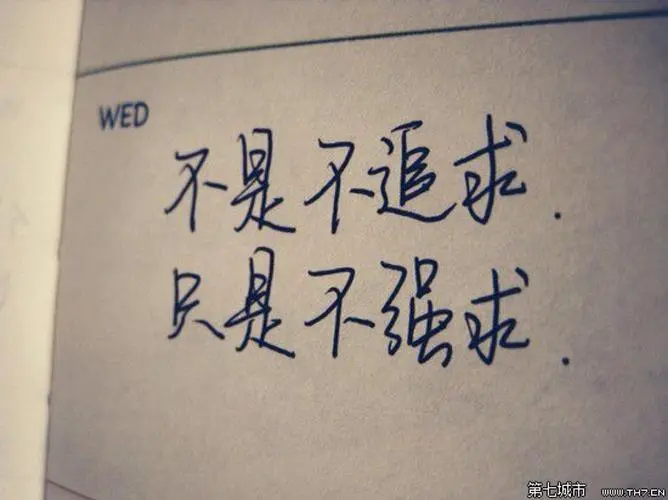 WED
不是不追求.
只是不强求.
第七城市 WWW.TH7.CN